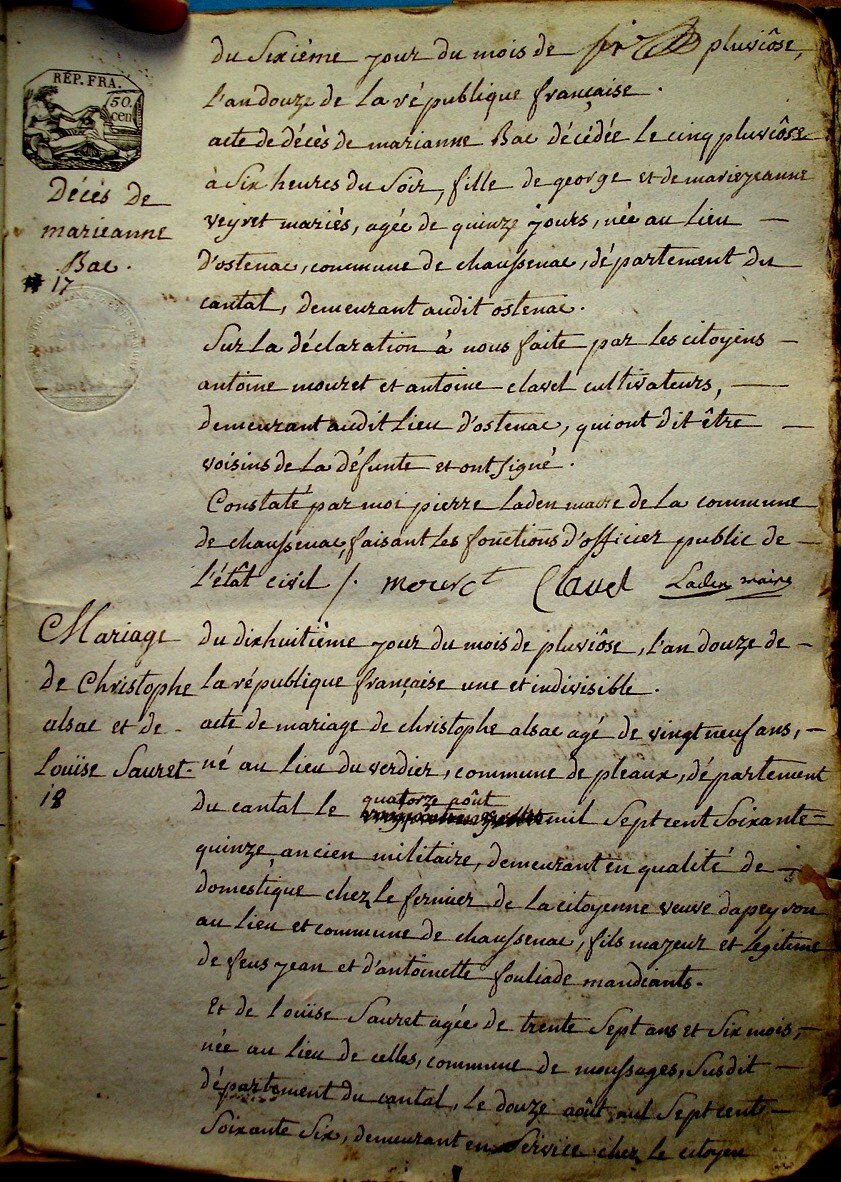 RÉP. FRA.
50.
cen
Décès de
marieanne
Bac.
# 17
du Sixième jour du mois de pluviôse,
l'an douze de la république française.
acte de décès de marianne Bac décédée le cinq pluviôse
à Six heures du Soir, fille de george et de mariejeanne
veyret mariés, agée de quinze jours, née au Lieu —
d'ostenac, commune de chaussenac, département du
cantal, demeurant audit ostenac.
Sur la déclaration à nous faite par les citoyens —
antoine mouret et antoine clavel cultivateurs, —
demeurant audit Lieu d'ostenac, qui ont dit être —
voisins de la défunte et ont signé.
Constaté par moi pierre Laden maire de la commune
de chaussenac, faisant les fonctions d'officier public de —
l'étât civil /. mouret Clavel Laden maire
Mariage
de Christophe
alsac et de -
Louïse Sauret.
18
du dixhuitième jour du mois de pluviôse, l'an douze de —
la république française une et indivisible.
acte de mariage de christophe alsac agé de vingt neuf ans, —
né au Lieu du verdier, commune de pleaux, département
du cantal le quatorze août mil Sept cent Soixante=
quinze, ancien militaire, demeurant en qualité de —
domestique chez le fermier de la citoyenne veuve dapeyrou
au Lieu et commune de chaussenac, fils majeur et légitime
de feus jean et d'antoinette fouliade mandiants.
Et de Louïse Sauret agée de trente Sept ans et Six mois, —
née au Lieu de celles, commune de moussages, Susdit —
département du cantal, le douze août mil Sept cent —
Soixante Six, demeurant en Service chez le citoyen